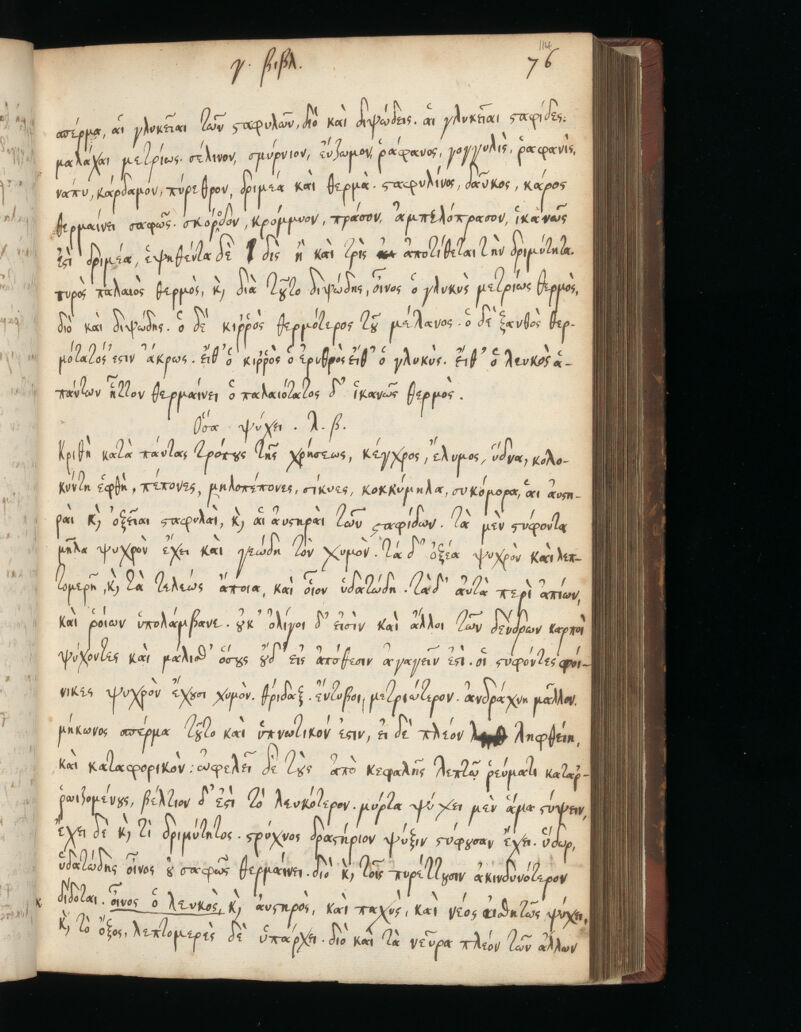 114
γ. βιβλ. 76
σπέρμα, αἱ γλυκεῖαι τῶν σαφυλῶν, διὸ καὶ διψώδεις. αἱ γλυκεῖαι σταφίδες.
μαλάχαι μετρίως. σέλινον, σμύρνιον, εὔζωμον, ῥάφανος, γογγυλὶς, ῥαφανὶς,
νάπυ, κάρδαμον, πύρεθρον, δριμέα καὶ θερμά. σταφυλίνος, δαῦκος, κάρος
θερμαίνει σαφῶς. σκόροδον, κρόμμυον, πράσον, ἀμπελόπρασον, ἱκανῶς
ἐστὶ δριμέα, ἑψηθέντα δὲ δὶς ἢ καὶ τρὶς ἀποτίθεται τὴν δριμύτητα.
πυρὸς παλαιὸς θερμὸς, κ̀ διὰ τοῦτο διψώδης, οἶνος ὁ γλυκὺς μετρίως θερμὸς,
διὸ καὶ διψώδης. ὁ δὲ κιῤῥὸς θερμότερος τοῦ μέλανος. ὁ δὲ ξανθὸς θερ-
μότατός ἐστιν ἄκρως. εἶθ' ὁ κιῤῥὸς ὁ ἐρυθρὸς εἶθ' ὁ γλυκὺς. εἶθ' ὁ λευκὸς ἁ-
πάντων ἧττον θερμαίνει ὁ παλαιότατος δ' ἱκανῶς θερμὸς.
Ὅσα ψύχει. λ. β.
Κριθὴ κατὰ πάντας τρόπους τῆς χρήσεως, κέγχρος, ἔλυμος, ὕδνα, κολο-
κύντη ἑφθὴ, πέπονες, μηλοπέπονες, σίκυες, κοκκύμηλα, συκόμορα, αἱ αὐστη-
ραὶ κ̀ ὀξεῖαι σταφυλαὶ, κ̀ αἱ αὐστηραὶ τῶν σταφίδων. τὰ μὲν στύφοντα
μῆλα ψυχρὸν ἔχει καὶ γεώδη τὸν χυμὸν. τὰ δ' ὀξέα ψυχρὸν καὶ λεπ-
τομερῆ, κ̀ τὰ τελέως ἄποια, καὶ οἷον ὑδατώδη. τὰ δ' αὐτὰ περὶ ἀπίων,
καὶ ῥόιων ὑπολάμβανε. οὐκ' ὀλίγοι δ' εἰσὶν καὶ ἄλλοι τῶν δένδρων καρποὶ
ψύχοντες καὶ μάλισθ' ὅσους οὐδ' εἰς ἀπόθεσιν ἀγαγεῖν ἐστὶ. οἱ στύφοντες φοί-
νικες ψυχρὸν ἔχουσι χυμὸν. θρίδαξ. ἔντυβοι, μετριώτερον. ἀνδράχνη μᾶλλον.
μήκωνος σπέρμα τοῦτο καὶ ὑπνωτικόν ἐστιν, εἰ δὲ πλέον ληφθείη,
καὶ καταφορικὸν: ὠφελεῖ δὲ τοὺς ἀπὸ κεφαλῆς λεπτῷ ῥεύματι καταῤ-
ῥοιζομένους, βέλτιον δ' ἐστὶ τὸ λευκότερον. μύρτα ψύχει μὲν ἅμα στύψειν,
ἔχει δὲ κ̀ τὶ δριμύτητος. στρύχνος δραστήριον ψύξιν στύφουσαν ἔχει. ὕδωρ,
ὑδατώδης οἶνος οὐ σαφῶς θερμαίνει. διὸ κ̀ τοῖς πυρέττουσιν ἀκινδυνότερον
δίδοται. οἶνος ὁ λευκὸς, κ̀ αὐστηρὸς, καὶ παχὺς, καὶ νέος αἰσθητῶς ψύχει,
κ̀ τὸ ὄξος, λεπτομερὲς δὲ ὑπάρχει. διὸ καὶ τὰ νεῦρα πλέον τῶν ἄλλων